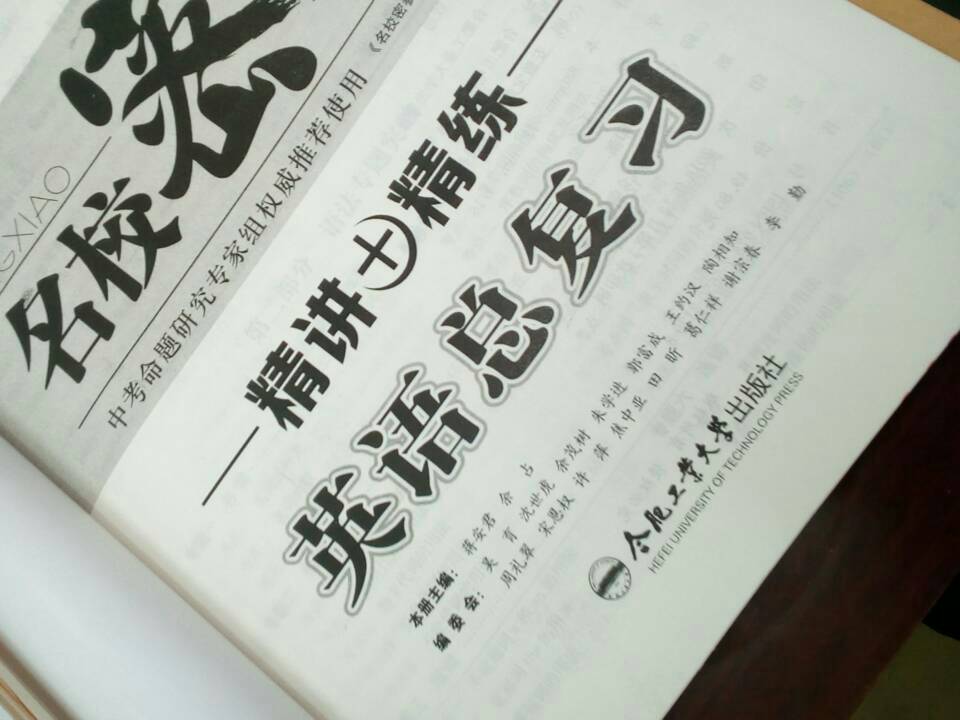 名校密
GXIAO
中考命题研究专家组权威推荐使用
《名校密
精讲+精练
英语总复习
本册主编: 蒋安君 余 占
编 委 会: 吴 育 沈世虎 余茂树 朱学进 郭富成 王约汉 陶相知
周礼翠 宋恩权 许 萍 焦中亚 田 昕 葛仁祥 谢宗春 李 勤
合肥工业大学出版社
HEFEI UNIVERSITY OF TECHNOLOGY PRESS